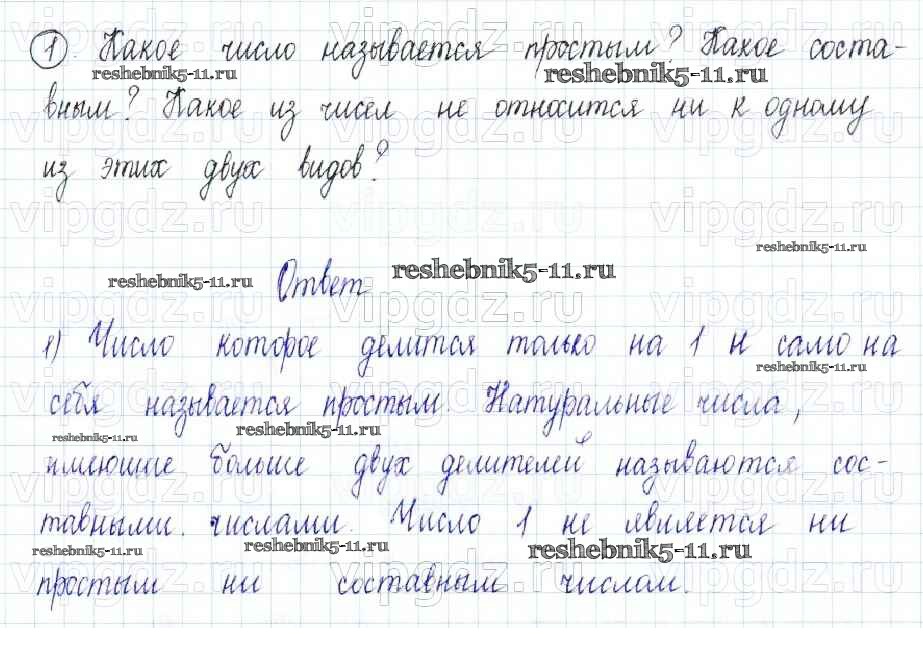 1. Какое число называется простым? Какое соста-
вным? Какое из чисел не относится ни к одному
из этих двух видов?
Ответ
1) Число которое делится только на 1 и само на
себя называется простым. Натуральные числа,
имеющие больше двух делителей называются сос-
тавными. числами. Число 1 не является ни
простым ни составным числом.
reshebnik5-11.ru
reshebnik5-11.ru
reshebnik5-11.ru
reshebnik5-11.ru
reshebnik5-11.ru
reshebnik5-11.ru
reshebnik5-11.ru
reshebnik5-11.ru
reshebnik5-11.ru
reshebnik5-11.ru
reshebnik5-11.ru
vipgdz.ru